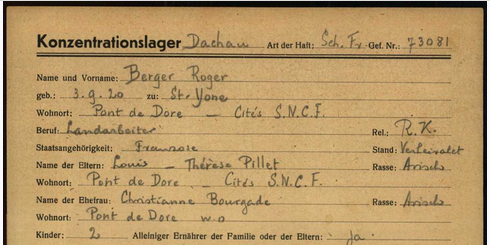 Konzentrationslager Dachau Art der Haft: Sch. Fr. Gef. Nr.: 73081
Name und Vorname: Berger Roger
geb.: 3.9.20 zu: St. Yone
Wohnort: Pont de Dore - Cités S.N.C.F.
Beruf: Landarbeiter Rel.: R.K.
Staatsangehörigkeit: Franzose Stand: Verheiratet
Name der Eltern: Louis - Thérèse Pillet Rasse: Arisch
Wohnort: Pont de Dore - Cités S.N.C.F.
Name der Ehefrau: Christianne Bourgade Rasse: Arisch
Wohnort: Pont de Dore w.o
Kinder: 2 Alleiniger Ernährer der Familie oder der Eltern: ja.